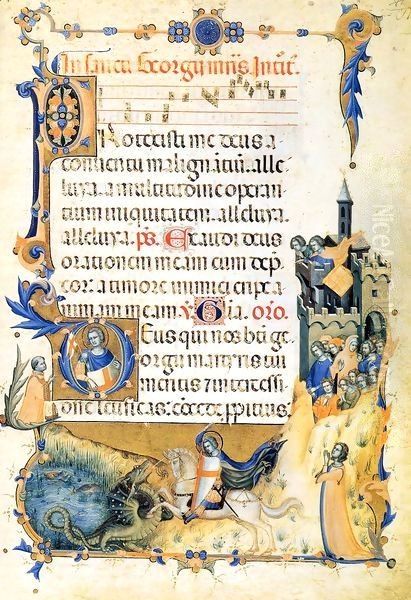 In sancti Georgij mris. Introit.
Protexisti me deus a
conventu malignātiū. alle
luya. a multitudine operan
tium iniquitatem. alleluya.
alleluya. ps. Exaudi deus
orationem meam cum dep
cor: a timore inimici eripe a
nimam meam. v. Glia. oro.
Deus qui nos bti ge
orgij martyris tui
meritis et intercessi
one letificas. concede ppitius.